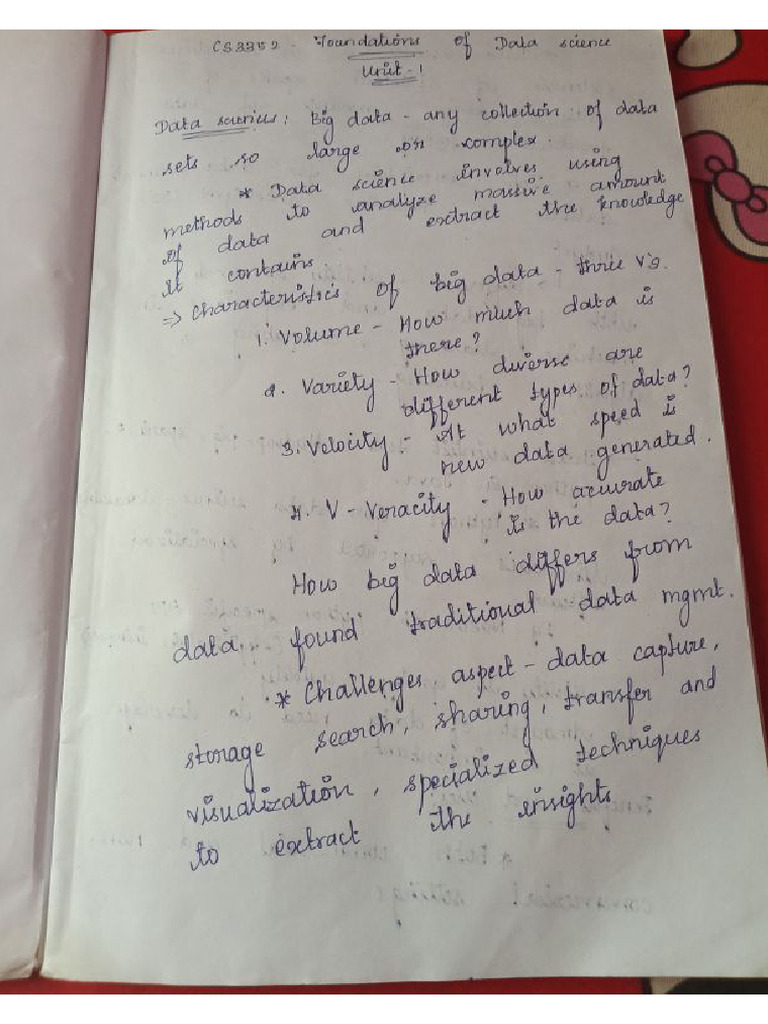 CS3352 - Foundations of Data science
Unit - 1
Data science: Big data - any collection of data
sets so large or complex.
* Data science involves using
methods to analyze massive amount
of data and extract the knowledge
it contains.
⇒ Characteristics of big data - three v's.
1. Volume - How much data is
there?
2. Variety - How diverse are
different types of data?
3. Velocity - At what speed is
new data generated.
4. V - Veracity - How accurate
is the data?
How big data differs from
data found traditional data mgmt.
* Challenges aspect - data capture,
storage search, sharing, transfer and
visualization, specialized techniques
to extract the insights